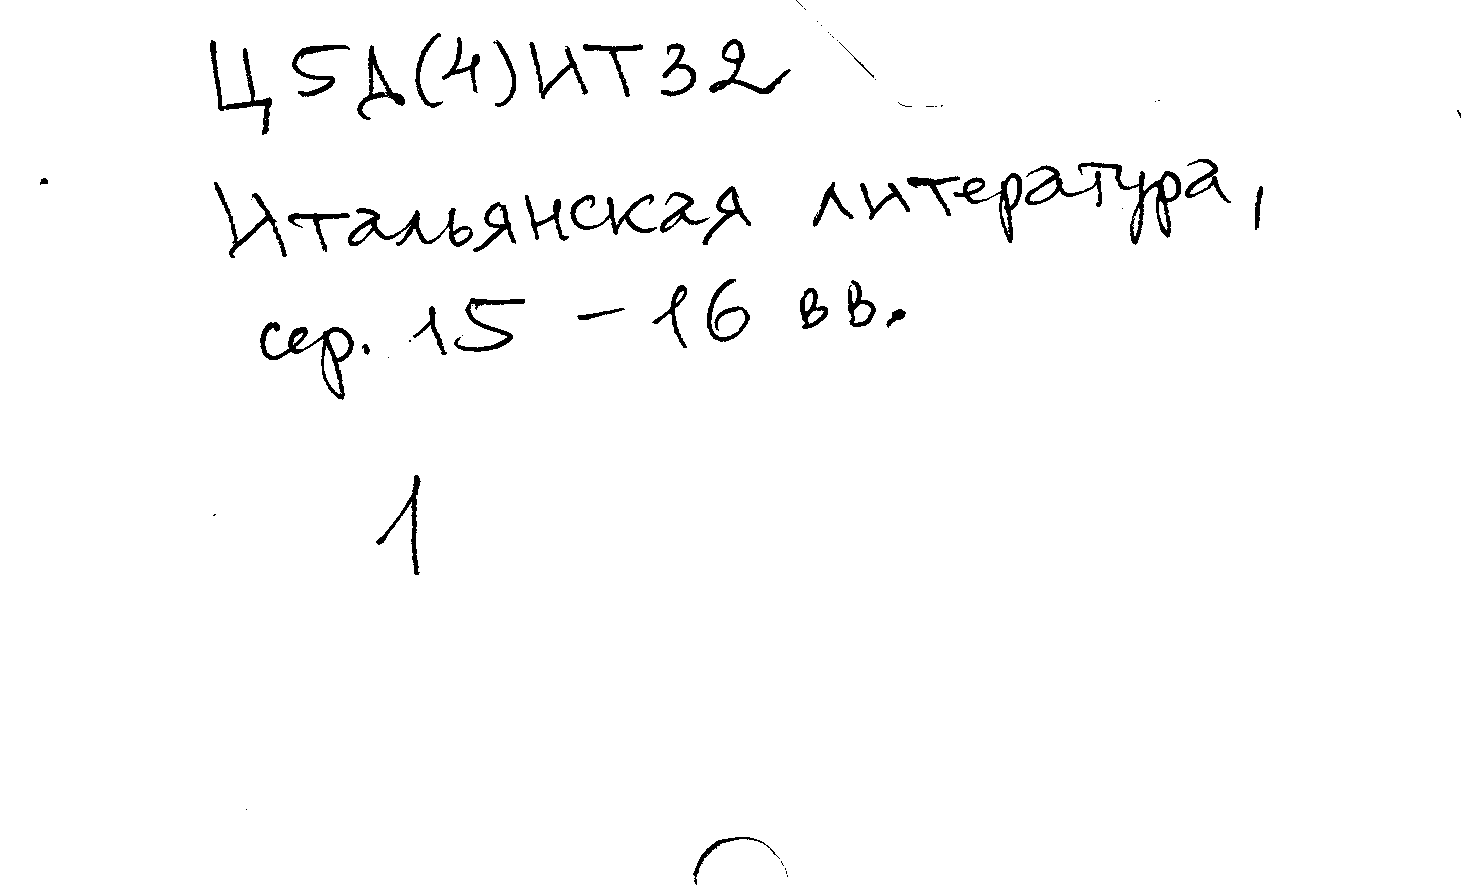 Ц5Д(4)ИТ32
Итальянская литература,
сер. 15 - 16 вв.
1